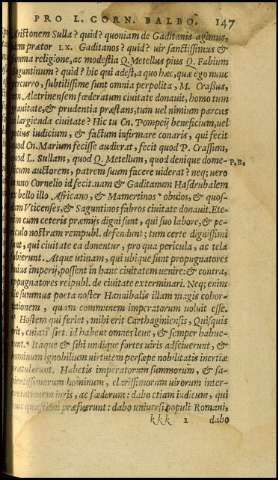 PRO L. CORN. BALBO. 147
ditionem Sulla? quid? quoniam de Gaditanis agimus,
idem prætor IX. Gaditanos? quid? vir sanctissimus &
summa religione, ac modestia Q. Metellus pius Q. Fabium
Saguntinum? quid? hic qui adest, a quo hæc, quæ ego nunc
percurro, subtilissime sunt omnia perpolita, M. Crassus,
Aletrinensem fœderatum ciuitate donauit, homo tum
grauitate, & prudentia præstans, tum vel nimium parcus
in largienda ciuitate? Hic tu Cn. Pompeij beneficium, vel
potius iudicium, & factum infirmare conaris, qui fecit
quod Cn. Marium fecisse audiuit, fecit quod P. Crassum,
quod L. Sullam, quod Q. Metellum, quod denique dome- P,B,
sticum auctorem, patrem suum facere viderat? neq; vero
in vno Cornelio id fecit. nam & Gaditanum Hasdrubalem
bello illo Africano, & Mamertinos obuios, & quos-
dam Vticenses, & Saguntinos fabros ciuitate donauit. Ete-
nim cum ceteris præmiis digni sunt, qui suo labore, & pe-
riculo nostram rempubl. defendunt; tum certe dignissimi
sunt, qui ciuitate ea donentur, pro qua pericula, ac tela
subierunt. Atque utinam, qui ubique sunt propugnatores
huius imperij, possent in hanc ciuitatem venire: & contra,
oppugnatores reipubl. de ciuitate exterminari. Neq; enim
ille summus poeta noster Hannibalis illam magis cohor-
tationem, quam communem imperatoriam uoluit esse.
Hostem qui feriet, mihi erit Carthaginiensis, Quisquis
erit, cuiatis siet. id habent omnes leue, & semper habue-
runt. Itaque & sibi undique fortes viros adsciuerunt, &
hominum ignobilium virtutem persæpe nobilitatis inertiæ
prætulerunt. Habetis imperatorum summorum, & sa-
pientissimorum hominum, clarissimorum virorum inter-
pretationem iuris, ac fœderum: dabo etiam iudicum, qui
huic quæstioni præfuerunt: dabo uniuersi populi Romani,
kkk 2 dabo